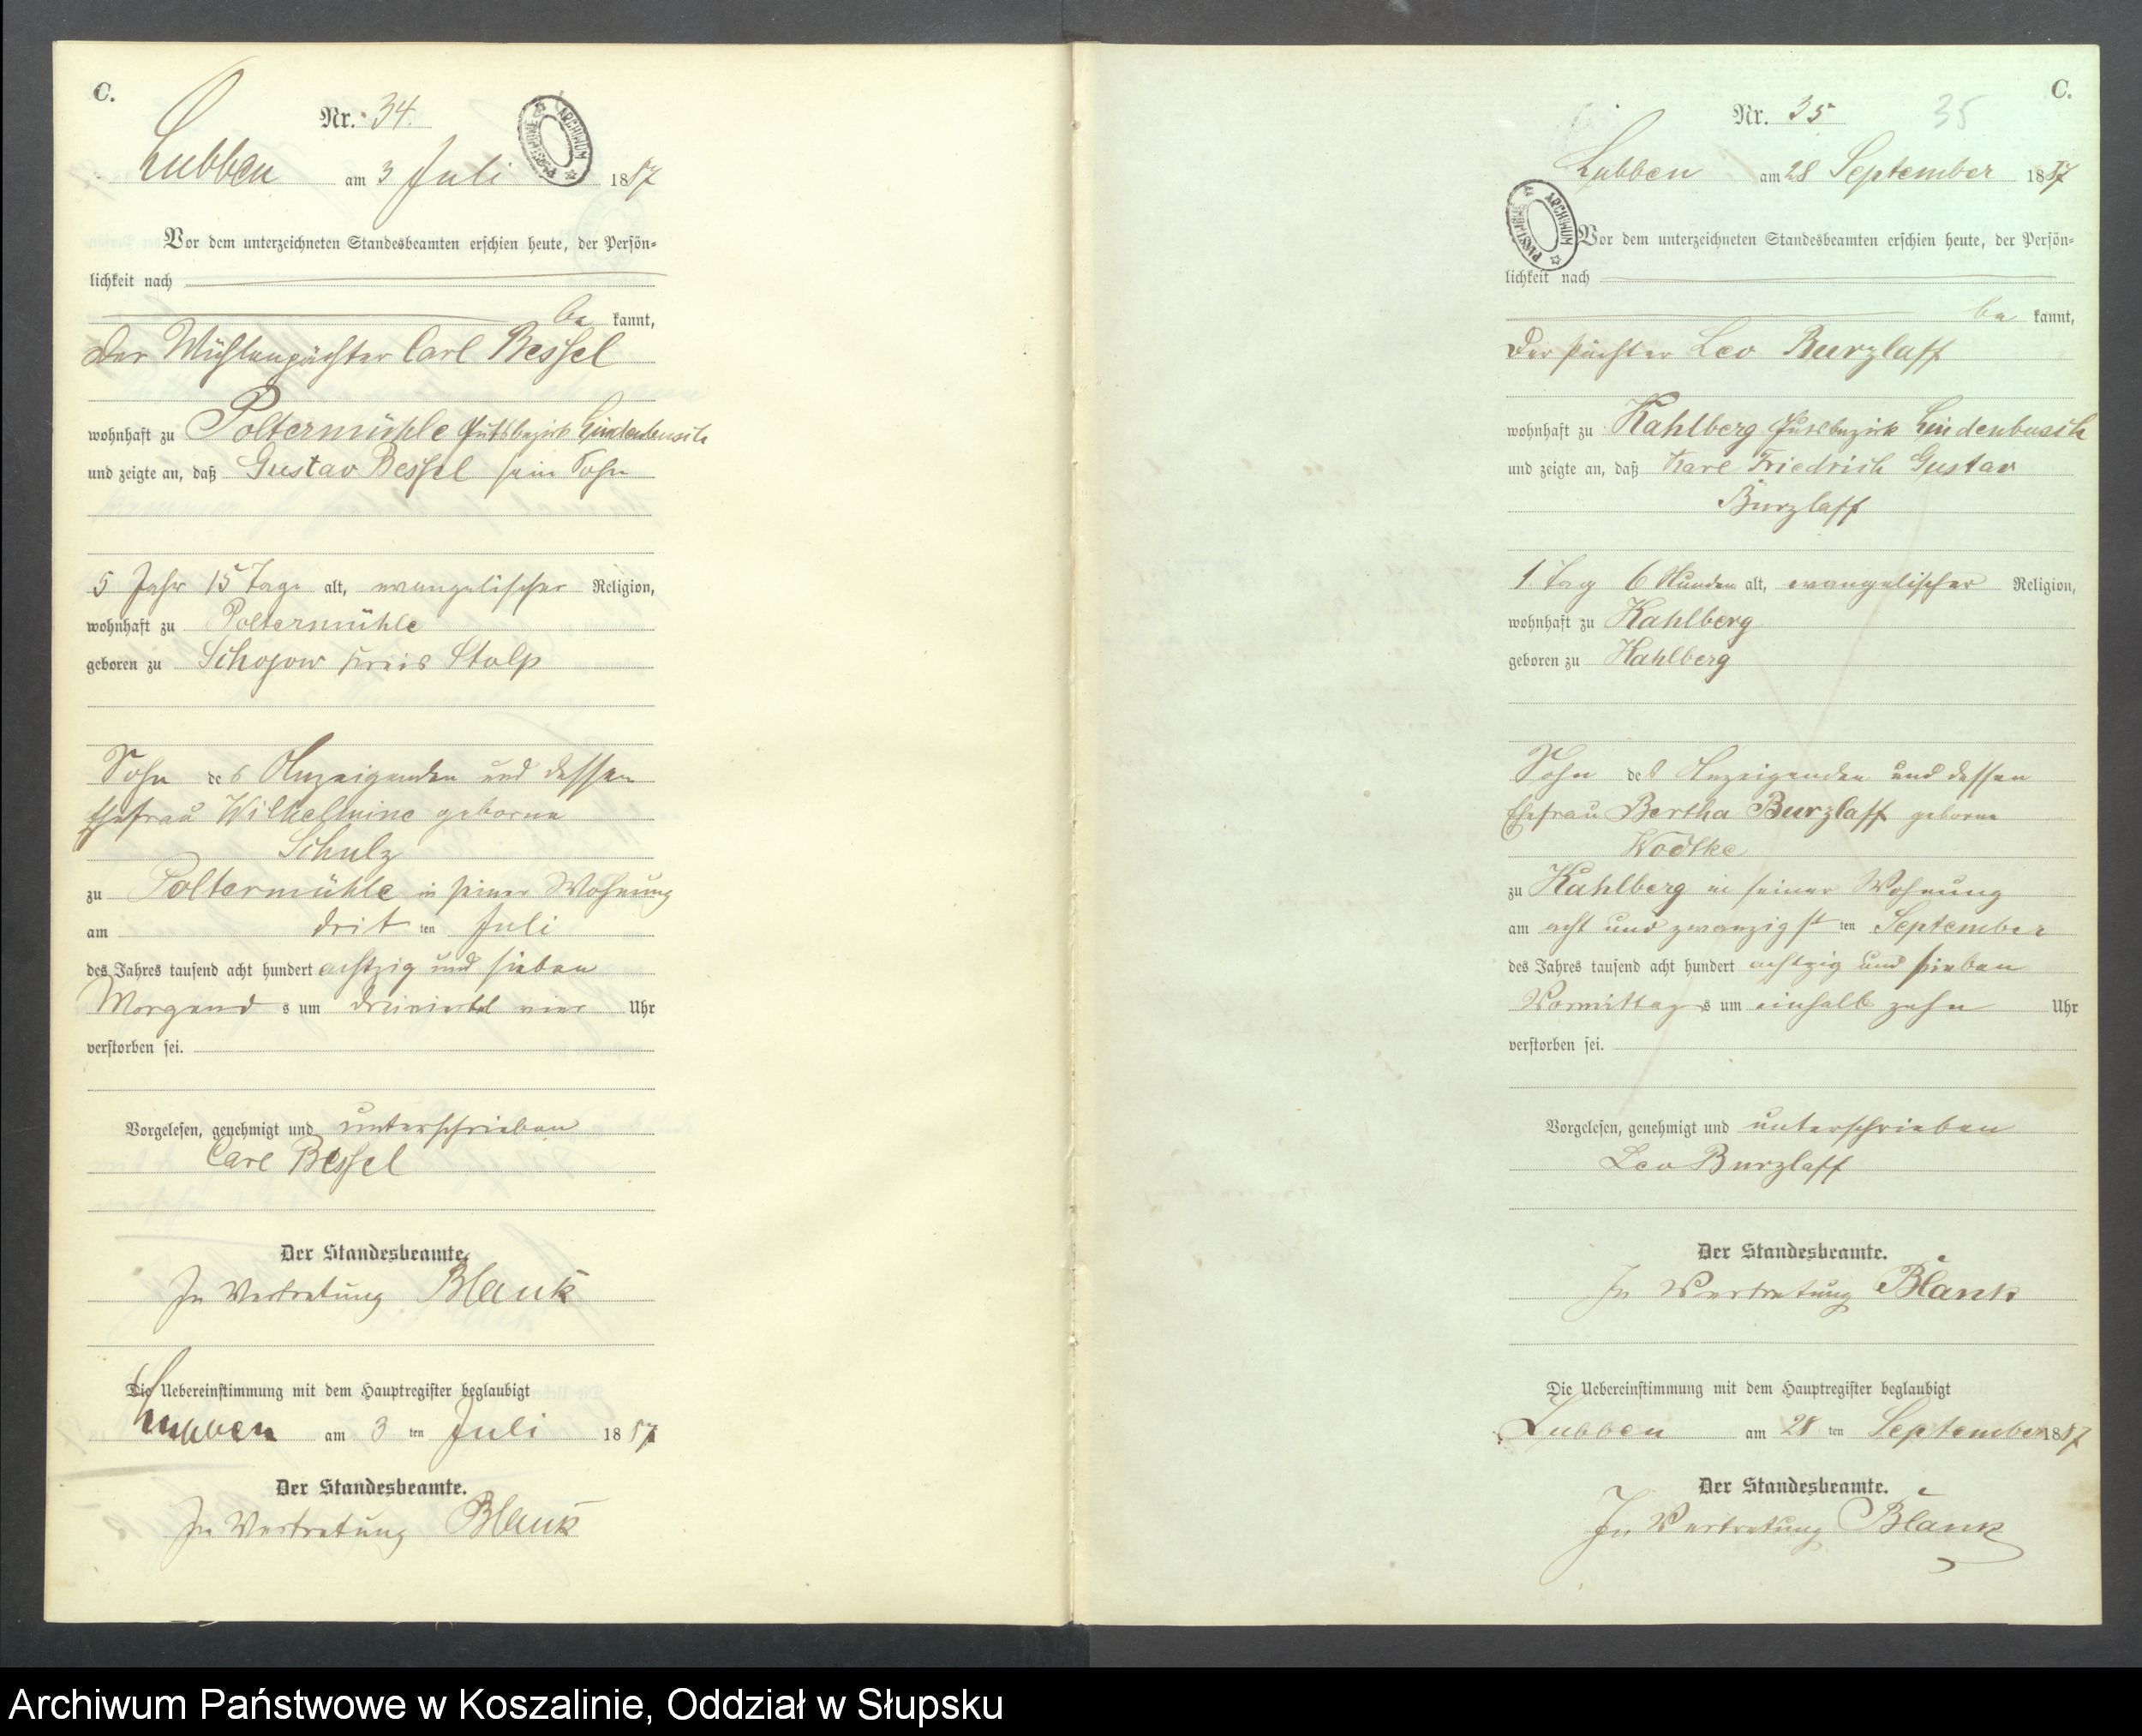 C.
Nr. 34.
ARCHIWUM
Lubben am 3 Juli 1887
Vor dem unterzeichneten Standesbeamten erschien heute, der Persön=
lichkeit nach
be kannt,
der Mühlenpächter Carl Bessel
wohnhaft zu Poltermühle Gutsbezirk Lindenbusch
und zeigte an, daß Gustav Bessel sein Sohn
5 Jahr 15 Tage alt, evangelischer Religion,
wohnhaft zu Poltermühle
geboren zu Schojow Kreis Stolp
Sohn des Anzeigenden und dessen
Ehefrau Wilhelmine geborne
Schulz
zu Poltermühle in seiner Wohnung
am dritten Juli
des Jahres tausend acht hundert achtzig und sieben
Morgends um dreiviertel vier Uhr
verstorben sei.
Vorgelesen, genehmigt und unterschrieben
Carl Bessel
Der Standesbeamte.
In Vertretung Blank
Die Uebereinstimmung mit dem Hauptregister beglaubigt
Lubben am 3 ten Juli 1887
Der Standesbeamte.
In Vertretung Blank
C.
Nr. 35 35
Lubben am 28 September 1887
ARCHIWUM
Vor dem unterzeichneten Standesbeamten erschien heute, der Persön=
lichkeit nach
be kannt,
der Pächter Leo Burzlaff
wohnhaft zu Kahlberg Gutsbezirk Lindenbusch
und zeigte an, daß Karl Friedrich Gustav
Burzlaff
1 Tag 6 Stunden alt, evangelischer Religion,
wohnhaft zu Kahlberg
geboren zu Kahlberg
Sohn des Anzeigenden und dessen
Ehefrau Bertha Burzlaff geborne
Wodtke
zu Kahlberg in seiner Wohnung
am acht und zwanzigst ten September
des Jahres tausend acht hundert achtzig und sieben
Vormittags um einhalb zehn Uhr
verstorben sei.
Vorgelesen, genehmigt und unterschrieben
Leo Burzlaff
Der Standesbeamte.
In Vertretung Blank
Die Uebereinstimmung mit dem Hauptregister beglaubigt
Lubben am 28 ten September 1887
Der Standesbeamte.
In Vertretung Blank
Archiwum Państwowe w Koszalinie, Oddział w Słupsku